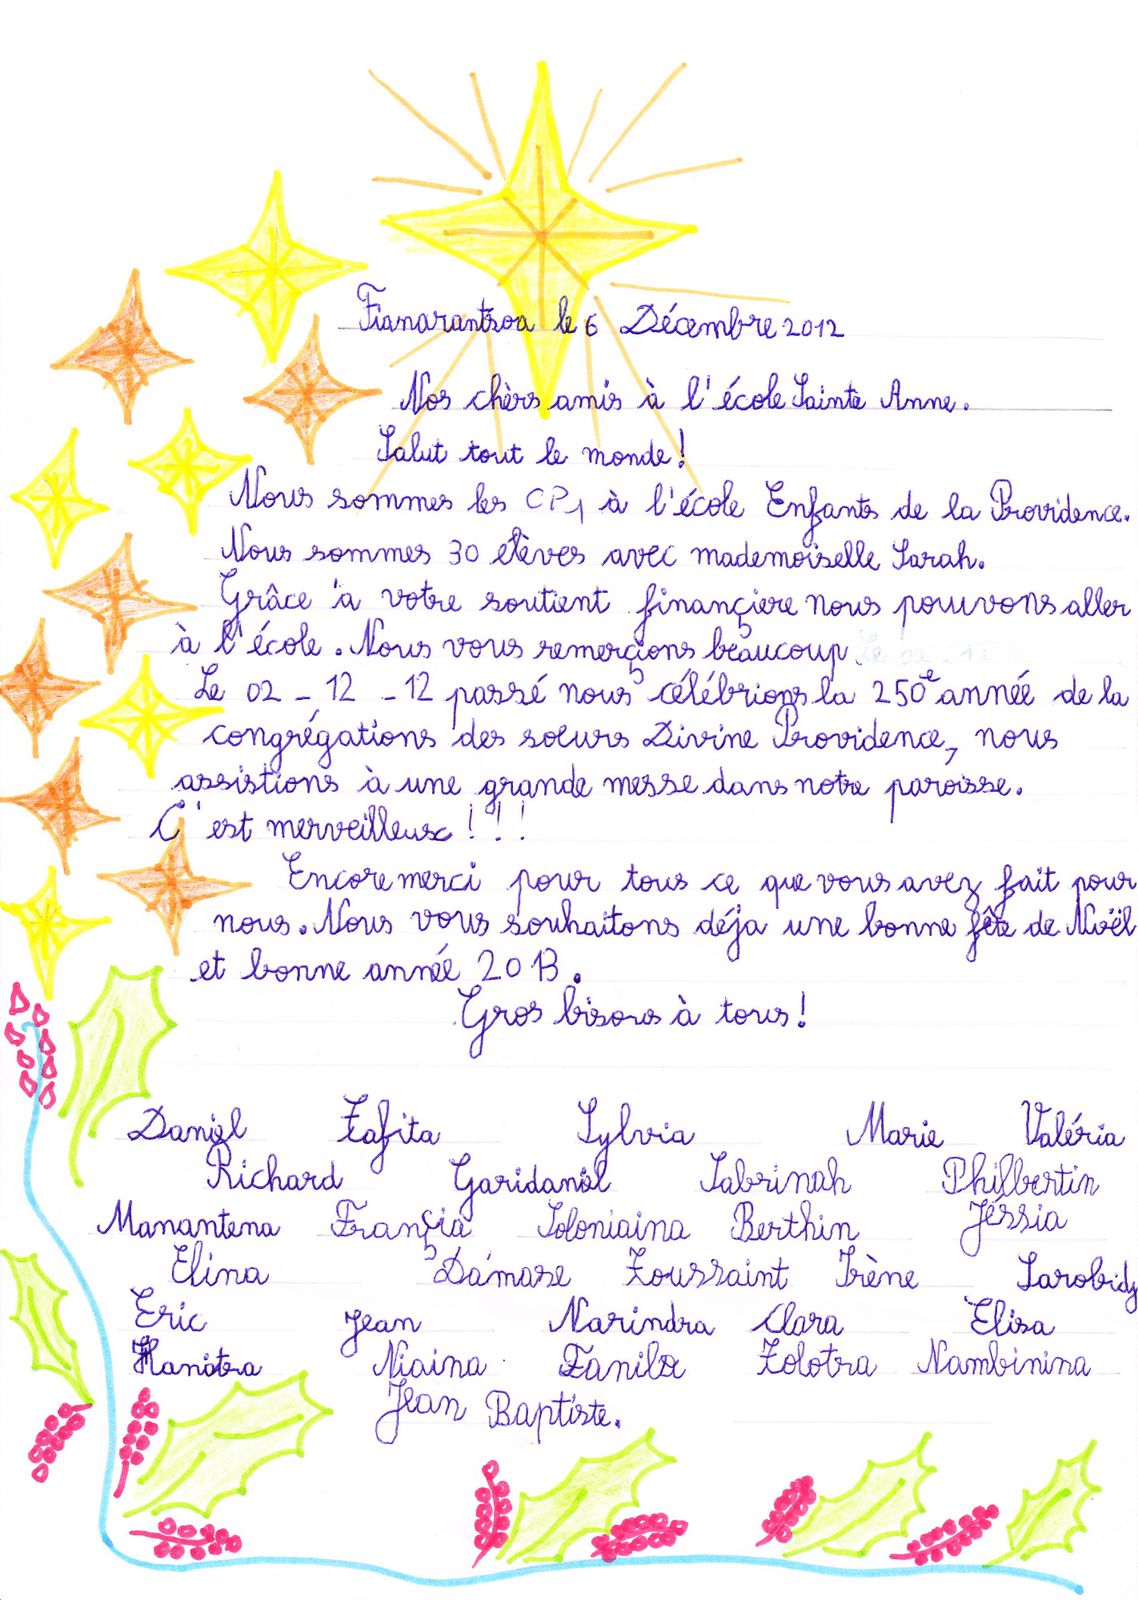 Fianarantsoa le 6 Décembre 2012
Nos chèrs amis à l'école Sainte Anne.
Salut tout le monde!
Nous sommes les CP1 à l'école Enfants de la Providence.
Nous sommes 30 élèves avec mademoiselle Sarah.
Grâce à votre soutient finançiere nous pouvons aller
à l'école. Nous vous remerçions beaucoup.
Le 02 - 12 - 12 passé nous célébrions la 250e année de la
congrégations des soeurs Divine Providence, nous
assistions à une grande messe dans notre paroisse.
C'est merveilleux!!!
Encore merci pour tous ce que vous avez fait pour
nous. Nous vous souhaitons déja une bonne fête de Noël
et bonne année 2013.
Gros bisous à tous!
Daniel Zafita Sylvia Marie Valéria
Richard Garidanol Sabrinah Philbertin
Manantena França Soloniaina Berthin Jéssia
Elina Damase Toussaint Irène Sarobidy
Eric Jean Narindra Clara Elisa
Hanitra Niaina Fanilo Zolotra Nambinina
Jean Baptiste.